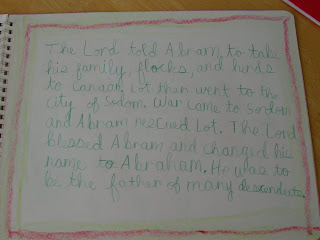 The Lord told Abram, to take
his family, flocks, and herds
to Canaan. Lot then went to the
city of Sodom. War came to Sodom
and Abram rescued Lot. The Lord
blessed Abram and changed his
name to Abraham. He was to
be the father of many descendents.